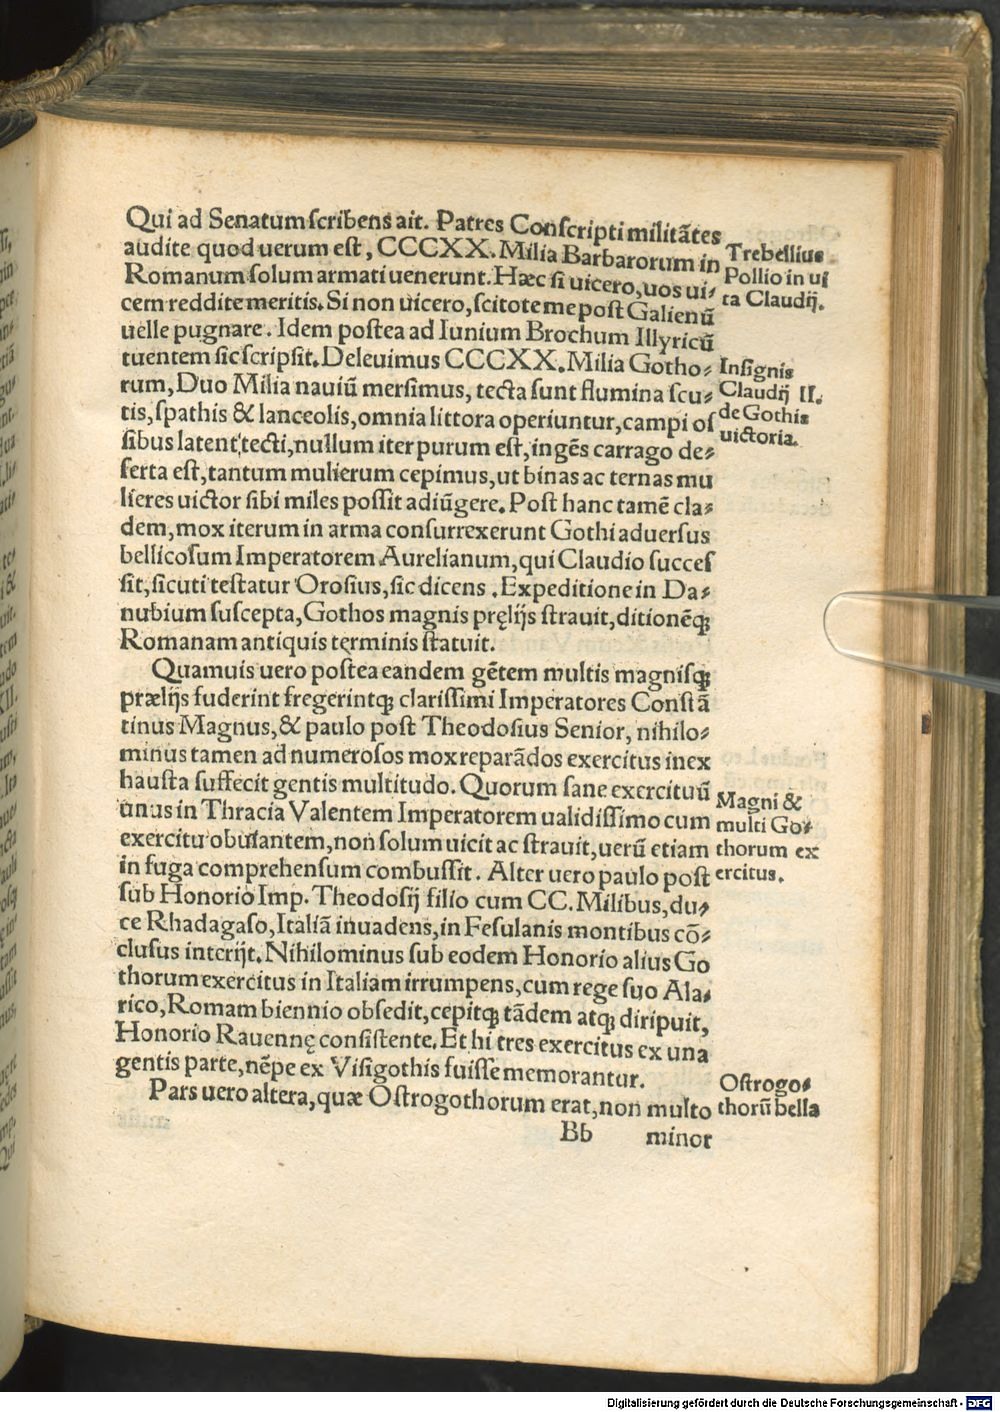 Qui ad Senatum scribens ait. Patres Conscripti militātes
audite quod uerum est, CCCXX. Milia Barbarorum in
Romanum solum armati uenerunt. Hæc si uicero, uos ui⸗
cem reddite meritis. Si non uicero, scitote me post Galienū
uelle pugnare. Idem postea ad Iunium Brochum Illyricū
tuentem sic scripsit. Deleuimus CCCXX. Milia Gotho⸗
rum, Duo Milia nauiū mersimus, tecta sunt flumina scu⸗
tis, spathis & lanceolis, omnia littora operiuntur, campi os
sibus latent tecti, nullum iter purum est, ingēs carrago de⸗
serta est, tantum mulierum cepimus, ut binas ac ternas mu
lieres uictor sibi miles possit adiūgere. Post hanc tamē cla⸗
dem, mox iterum in arma consurrexerunt Gothi aduersus
bellicosum Imperatorem Aurelianum, qui Claudio succes
sit, sicuti testatur Orosius, sic dicens. Expeditione in Da⸗
nubium suscepta, Gothos magnis pręlijs strauit, ditionēq;
Romanam antiquis terminis statuit.
Quamuis uero postea eandem gētem multis magnisq;
prælijs fuderint fregerintq; clarissimi Imperatores Constā
tinus Magnus, & paulo post Theodosius Senior, nihilo⸗
minus tamen ad numerosos mox reparādos exercitus inex
hausta suffecit gentis multitudo. Quorum sane exercituū
unus in Thracia Valentem Imperatorem ualidissimo cum
exercitu obuiantem, non solum uicit ac strauit, uerū etiam
in fuga comprehensum combussit. Alter uero paulo post
sub Honorio Imp. Theodosij filio cum CC. Milibus, du⸗
ce Rhadagaso, Italiā inuadens, in Fesulanis montibus cō⸗
clusus interijt. Nihilominus sub eodem Honorio alius Go
thorum exercitus in Italiam irrumpens, cum rege suo Ala⸗
rico, Romam biennio obsedit, cepitq; tādem atq; diripuit,
Honorio Rauennę consistente. Et hi tres exercitus ex una
gentis parte, nēpe ex Visigothis fuisse memorantur.
Pars uero altera, quæ Ostrogothorum erat, non multo
Bb minor
Trebellius
Pollio in ui
ta Claudij.
Insignis
Claudij II.
de Gothis
uictoria.
Magni &
multi Go⸗
thorum ex
ercitus.
Ostrogo⸗
thorū bella
Digitalisierung gefördert durch die Deutsche Forschungsgemeinschaft - DFG